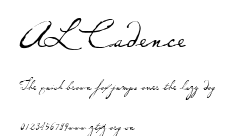 AL Cadence
The quick brown fox jumps over the lazy dog
0123456789